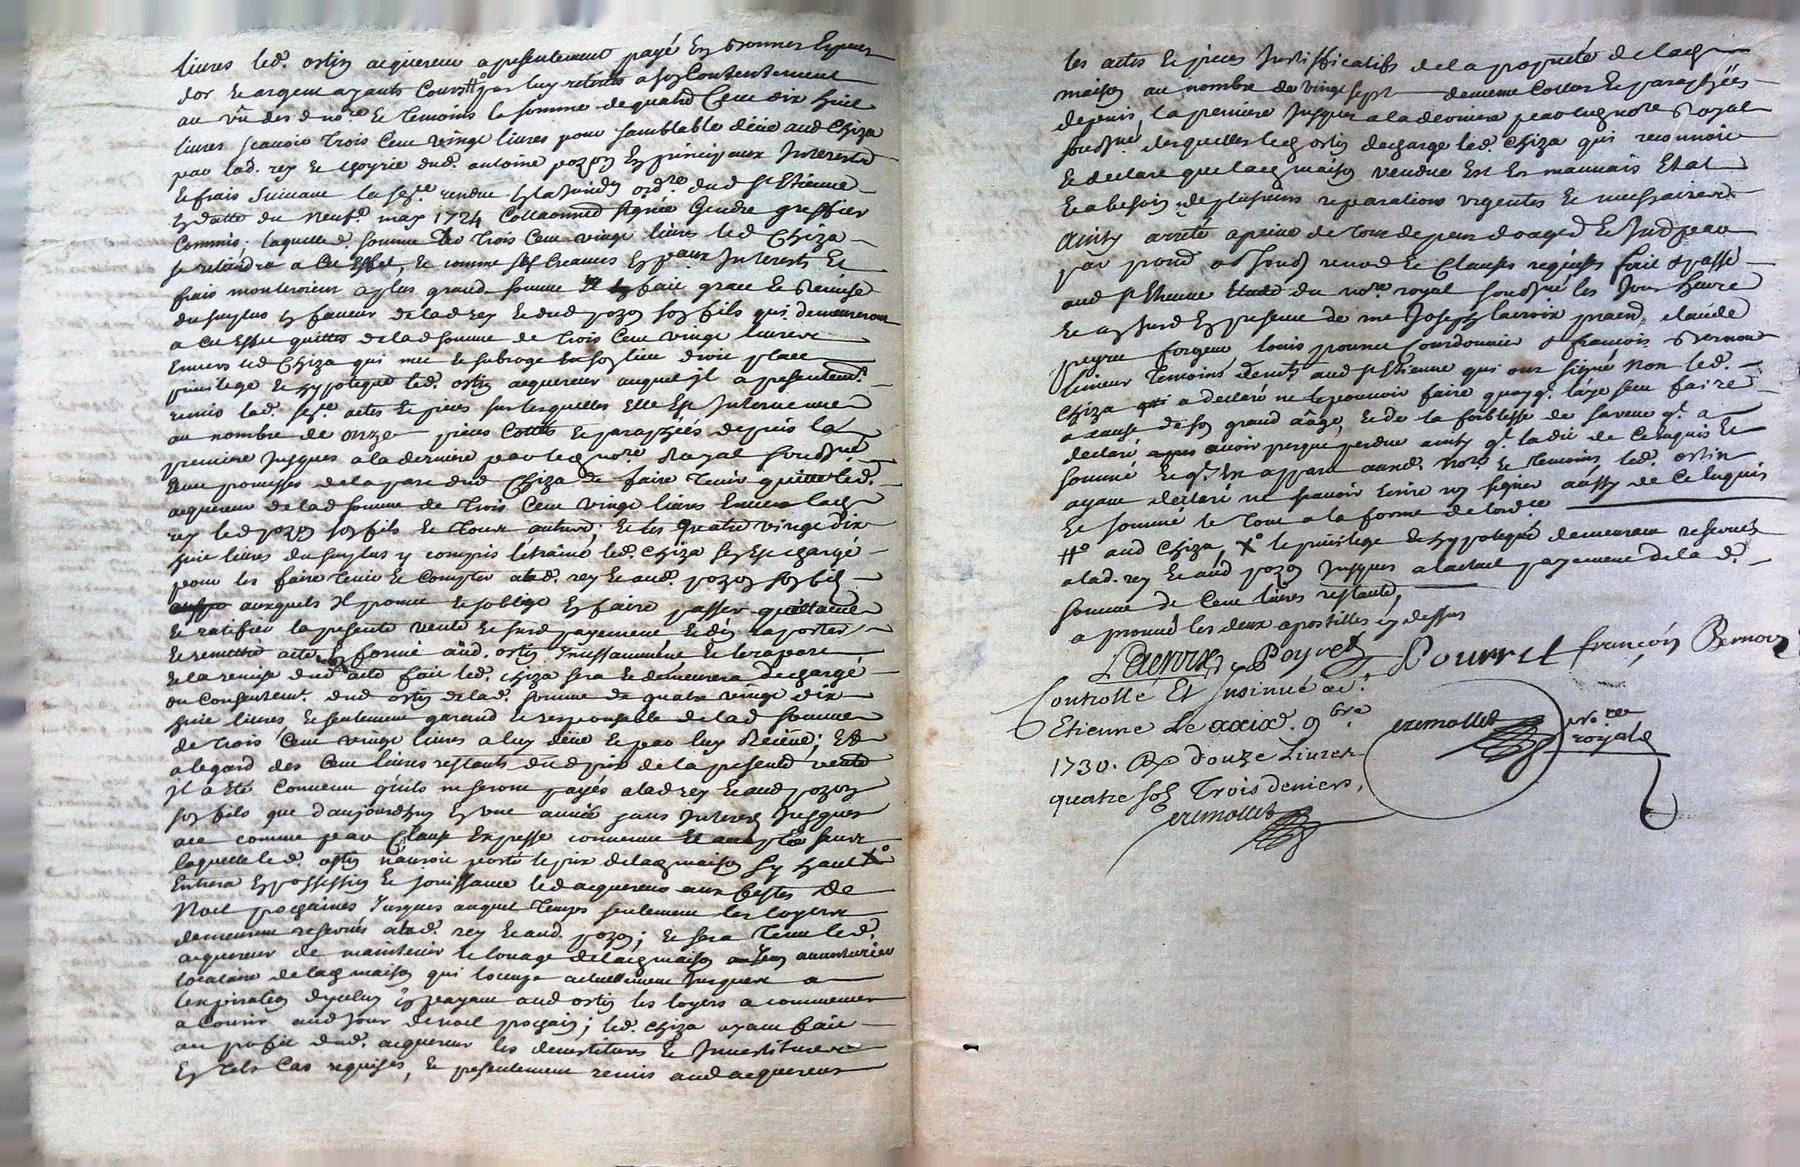 livres led. ostin acquereur a presentement payé en bonnes especes
dor et argent ayants Cours par luy retirés a son Contentement
au vû desd nore et Temoins la somme de quatre Cent dix huit
livres scavoir Trois Cent vingt livres pour semblable düe aud Chiza
par lad. rey et hoyrie dud. antoine pozon en principaux Interests
et frais Suivant la sence rendue en la ordre dud St Etienne
en datte du neufe may 1724 Collationné signée Gendre greffier
Commis; laquelle d. somme de trois Cent vingt livres led Chiza
se retiendra a Cet effet, et comme ses Creances en paux Interests et
frais monteroient a plus grande somme Il en fait grace et Remise
du surplus en faveur de lad rey et dud pozon son fils qui demeureront
a Cet effet quittes de lad somme de Trois Cent vingt livres
Envers led Chiza qui met et subroge en son lieu droit place
privilege et hypoteque led. ostin acquereur auquel Il a presentemt
remis lad. sence actes et pieces sur lesquelles Elle Est Intervenue
au nombre de onze pieces Cottées et paraphées depuis la
premiere Jusques a la derniere par led nore Royal soussigné
avec promesses de la part dud Chiza de faire Tenir quitte led.
acquereur de lad somme de Trois Cent vingt livres Envers lad
rey led pozon son fils et Tous autres; et les quatre vingt dix
huit livres du surplus y compris létraine led. Chiza s'en Est chargé
pour les faire Tenir et Compter a lad. rey et aud. pozon son fils
auxquels Il promet et soblige en faire passer quittance
et ratifier la presente vente et sursd payement et din raporter
et remettre acte en forme aud. ostin Incessamment et le raport
et la remise dud acte fait led. chiza sera et demeurera dechargé
du Consentemt. dud ostin de lad. somme de quatre vingt dix
huit livres et seulement garand et responsable de lad somme
de Trois Cent vingt livres a luy düe et par luy Reçeüe; Et
a legard des Cent livres restants dud prix de la presente vente
Il a eté Convenu quils ne seront payés a lad rey et aud pozon
son fils que d'aujourdhuy en une année sans Interest Jusques
ace comme par Clause Expresse convenue et sans
laquelle led. ostin nauroit porté le prix de lad maison sy haut X°
Entrera en possession et Jouissance led acquereur aux festes de
Noel prochaines Jusques auquel Temps seulement les loyers
demeurent reservés a lad. rey et aud. pozon; et sera Tenu led.
acquereur de maintenir le louage de lad maison
locataire de lad maison qui loccupe actuellement Jusques a
lexpiration dyceluy En payant aud ostin les loyers a commencer
a Courir aud Jour de noel prochain; led. chiza ayant fait
au profit dud. acquereur les devestitures et Investitures
En tels Cas requises, et presentement remis aud acquereur
les actes et pieces Justifficatifs de la propriété de lad
maison au nombre de vingt sept de meme Cottés et paraphées
depuis la premiere Jusques a la derniere par led nore Royal
soussigné desquelles led ostin decharge led. Chiza qui reconnoit
et declare que lad maison vendue Est En mauvais Etat
et a besoin de plusieurs reparations urgentes et necessaires.
Ainsy arrêté a peine de Tous depens domages et Interests par
par promd obd soumd renond et Clauses requises fait et passé
aud St Etienne Etude du nore royal soussigné les Jour heure
et an susd En presence de me Joseph lacroix praend claude
peyret forgeur louis pourret Courdonnier et francois Bernou
limeur Temoins demts aud St Etienne qui ont signé non led.
Chiza a declaré ne le pouvoir faire quoyqe. layt seu faire
a cause de son grand aâge, et de la foiblesse de sa veue qe. a
declaré avoir presque perdue ainsy qe. la dit de Ce Enquis et
sommé et qe. Il a apparu auxd. nore et Temoins led. ostin
ayant declaré ne scavoir Ecrire ny signer aussy de Ce Enquis
et sommé le Tout a la forme de lordce
#° aud Chiza, X° le privilege et hypoteque demeurant reservés
a lad. rey et aud pozon Jusques a lactuel payement de la d.
somme de Cent livres restante,
approuvé les deux apostilles cy dessus
Lacroix Peyret Pourret françois Bernou
Controllé Et Insinué a St.
Etienne Le xxixe. 9bre
1730. R douze Livres
quatre sols Trois deniers,
cremollet
cremollet nore
royal